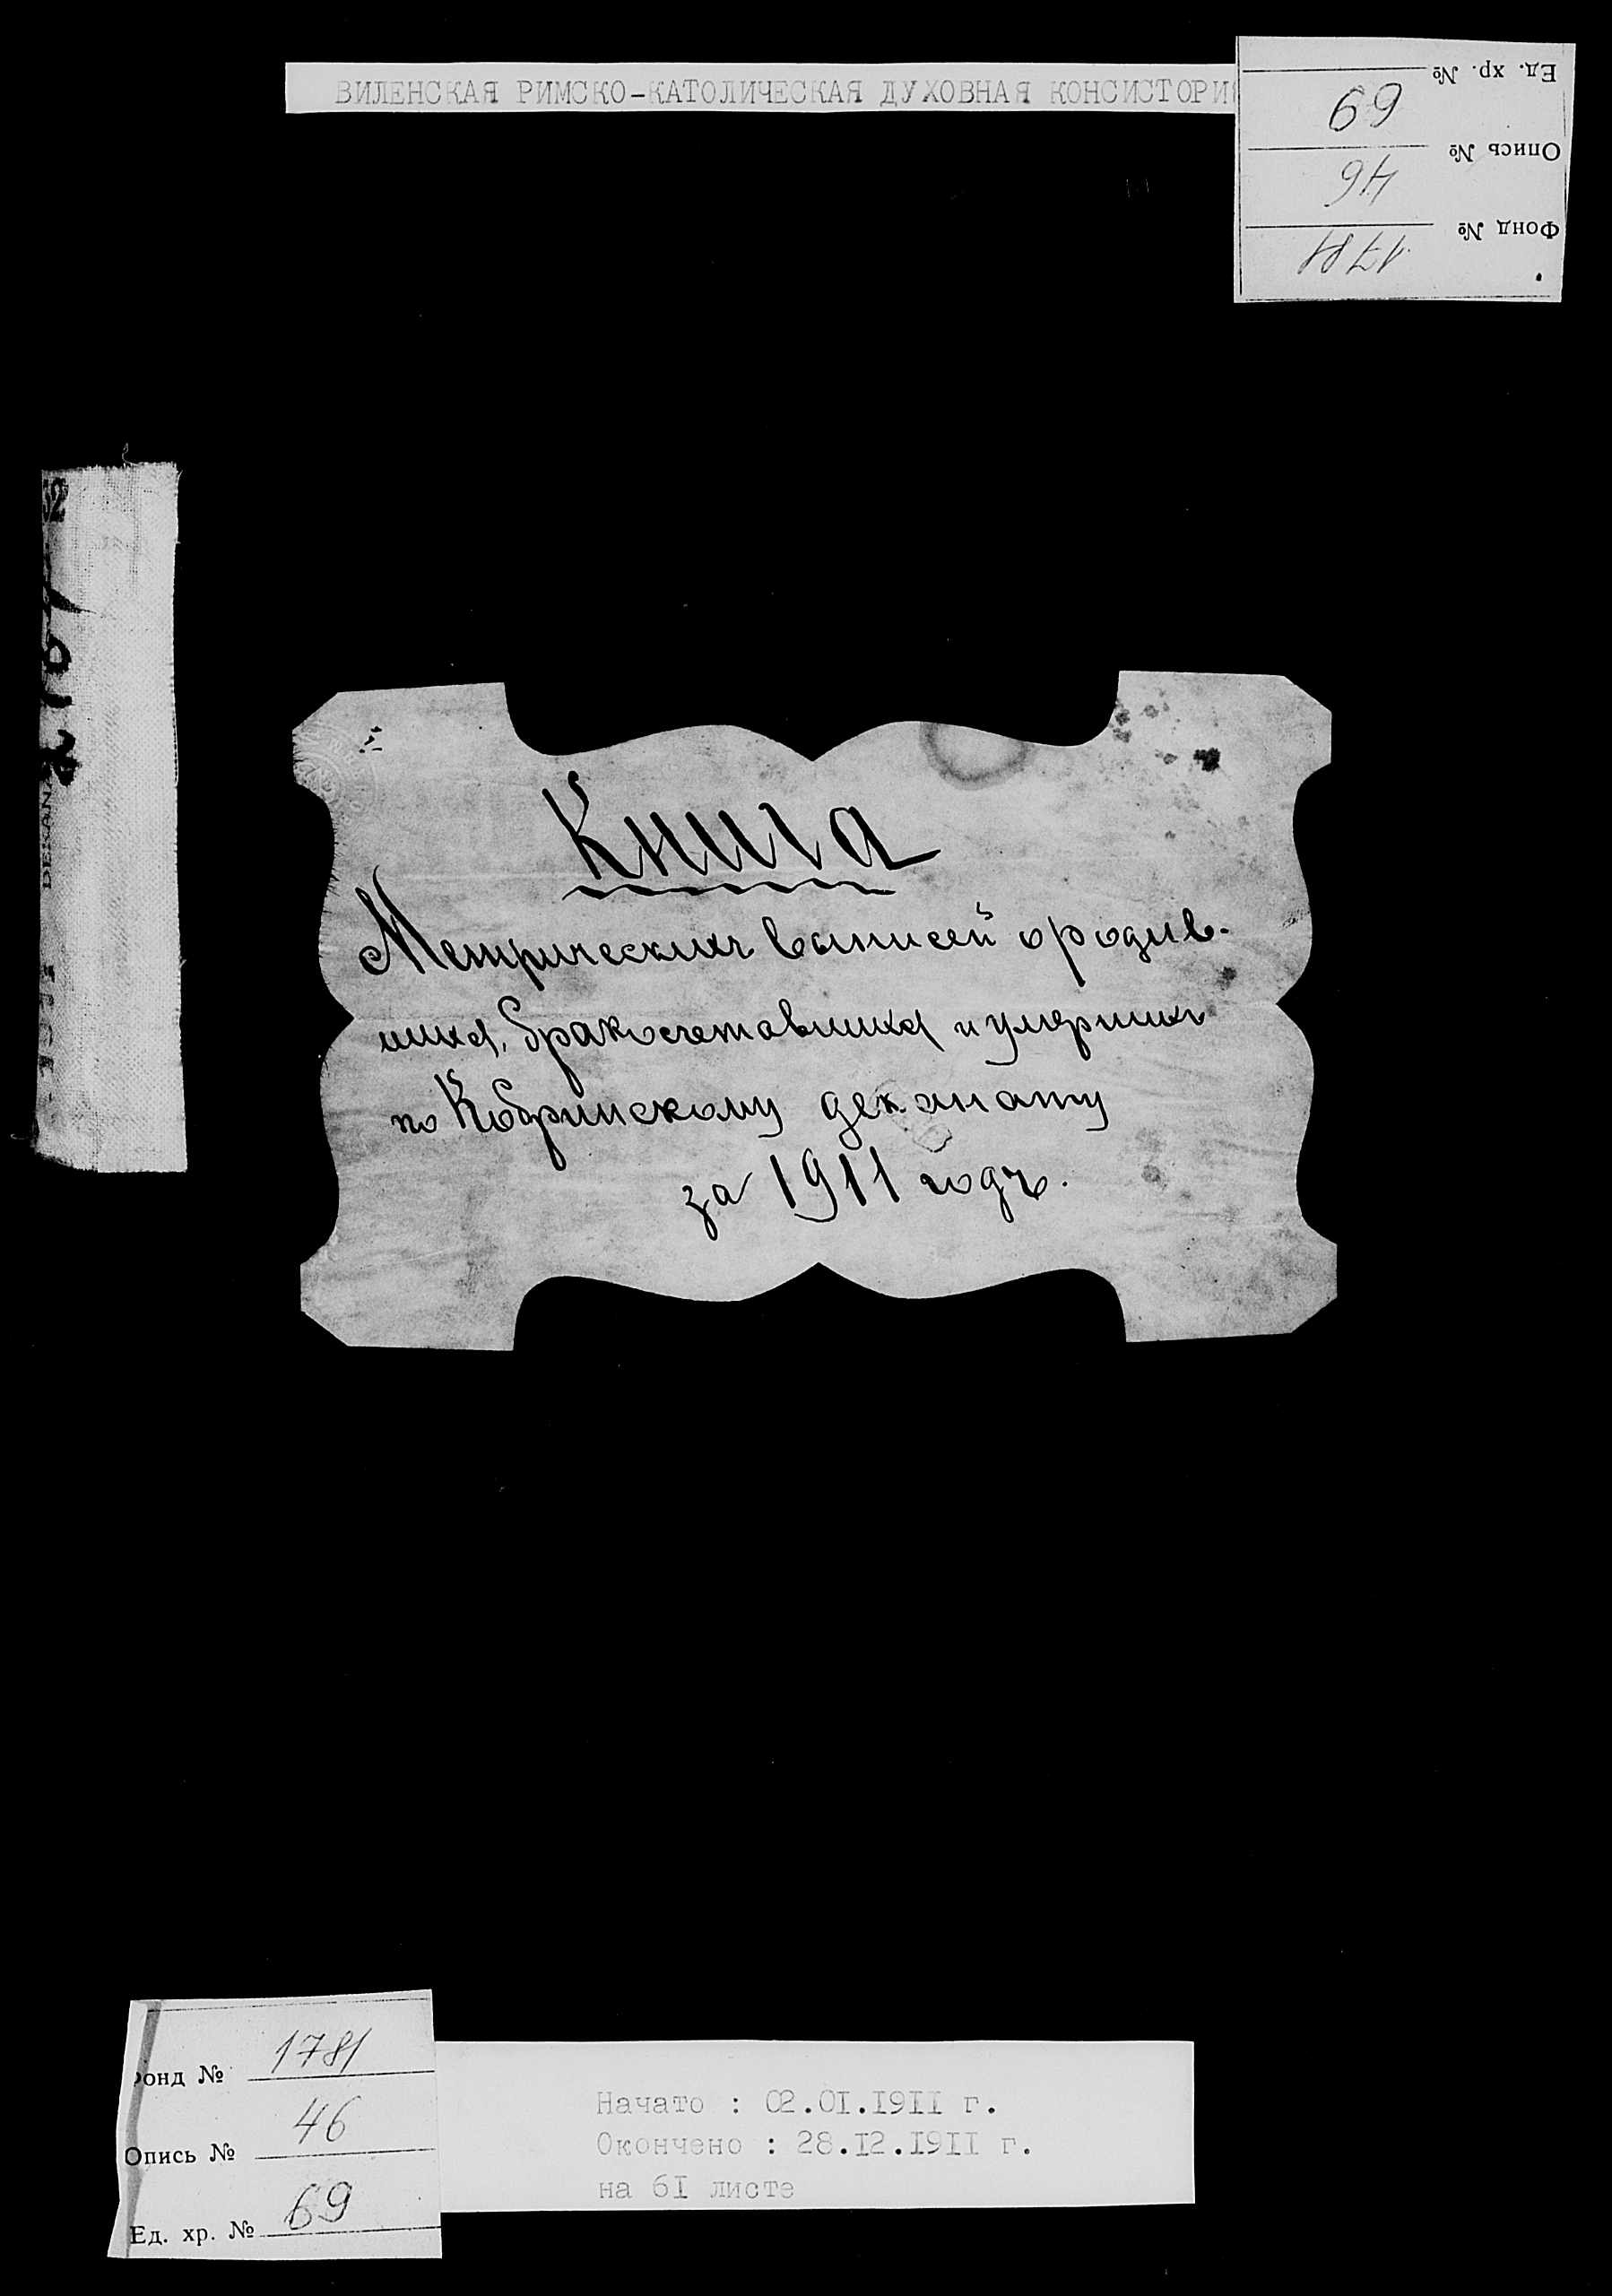 ВИЛЕНСКАЯ РИМСКО-КАТОЛИЧЕСКАЯ ДУХОВНАЯ КОНСИСТОРИЯ
Фонд № 1781
Опись № 46
Ед. хр. № 69
DEKANA
Книга
Метрическихъ выписей о родив-
шихся, бракосочетавшихся и умершихъ
по Кобринскому деканату
за 1911 годъ.
Фонд № 1781
Опись № 46
Ед. хр. № 69
Начато : 02.01.1911 г.
Окончено : 28.12.1911 г.
на 61 листе